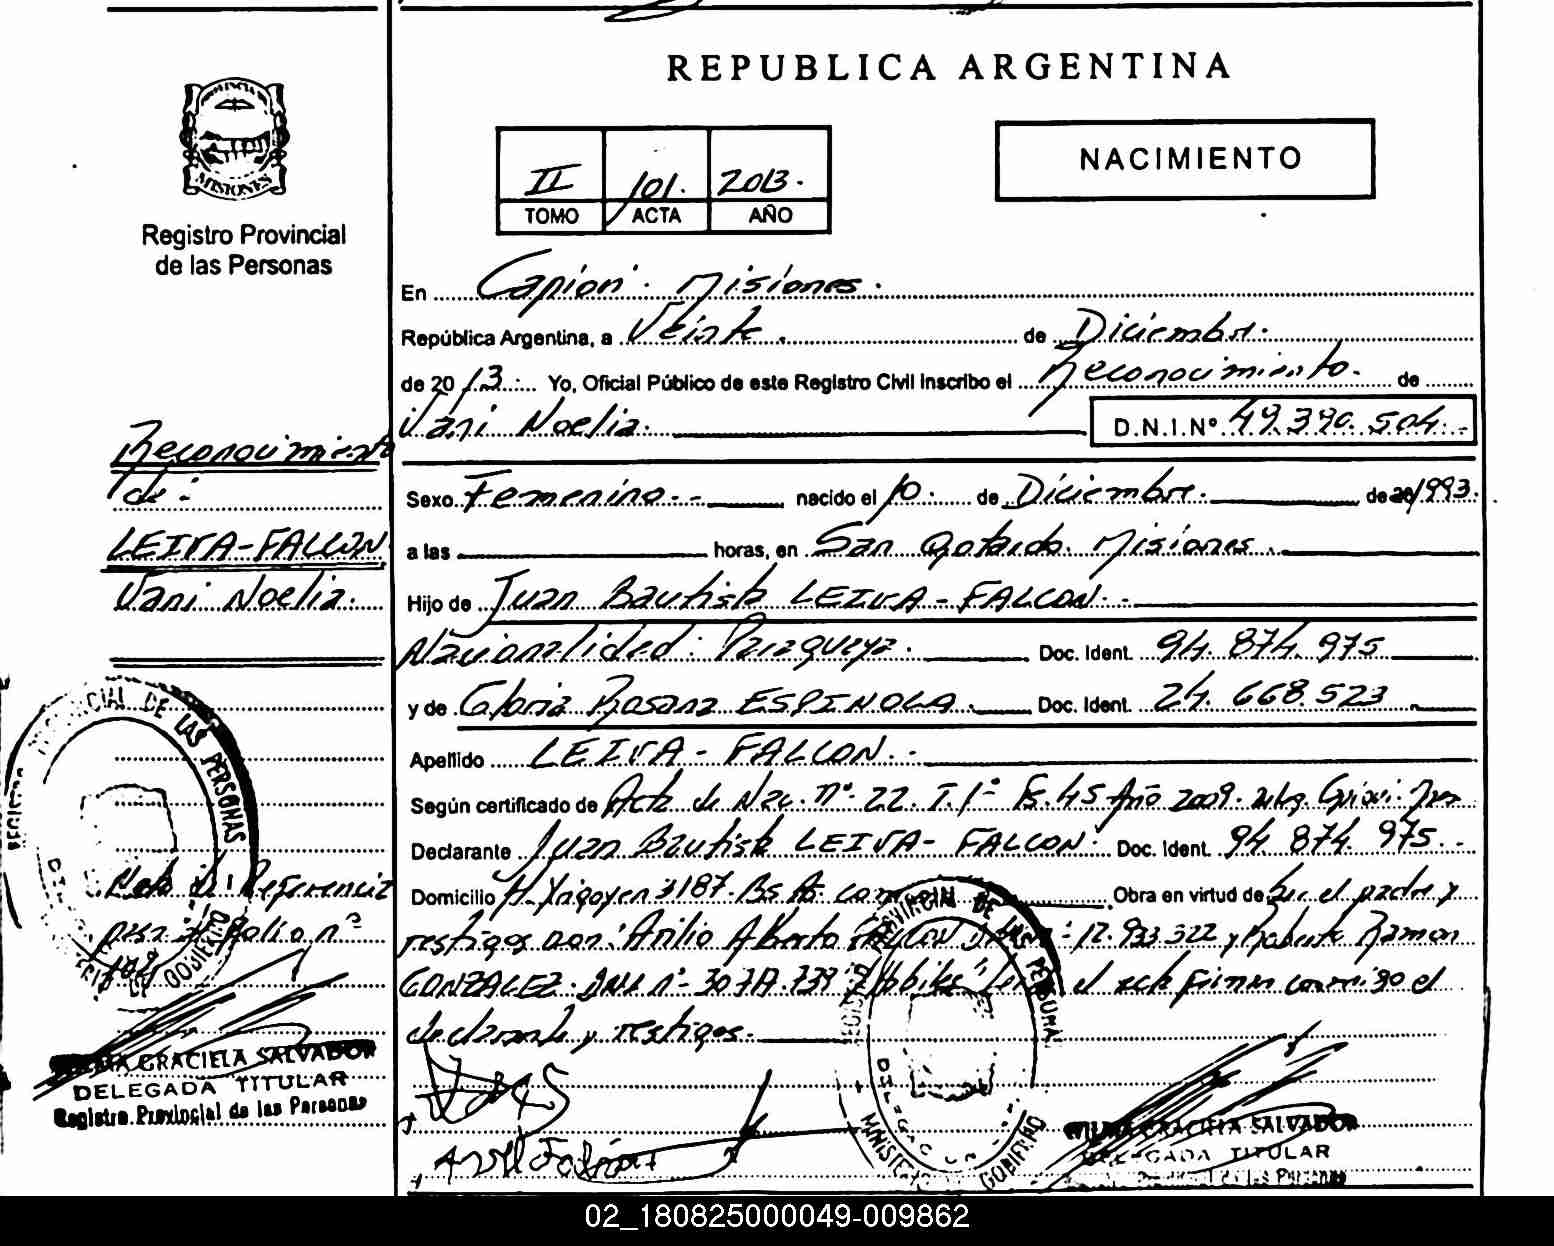 REPUBLICA ARGENTINA
PROVINCIA DE
MISIONES
Registro Provincial
de las Personas
II 101. 2013.
TOMO ACTA AÑO
NACIMIENTO
En Capioví. Misiones.
República Argentina, a Veinte. de Diciembre.
de 2013. Yo, Oficial Público de este Registro Civil Inscribo el Reconocimiento. de
Vani Noelia. D.N.I.Nº 49.390.504.-
Sexo Femenino.- nacido el 10. de Diciembre. de 1993.
a las horas, en San Gotardo. Misiones.
Hijo de Juan Bautista LEIVA-FALCON.-
Nacionalidad: Paraguaya. Doc. Ident. 94.874.975
y de Gloria Rosana ESPINOLA. Doc. Ident. 24.668.523
Apellido LEIVA-FALCON.-
Según certificado de Acta de Nac. nº 22. T. 1º F. 45 Año 2009.
Declarante Juan Bautista LEIVA-FALCON. Doc. Ident. 94.874.975.-
Domicilio H. Yrigoyen 3187. Bs As. Obra en virtud de ser el padre y
testigos don: Atilio Alberto FALCON 12.933.322 y Roberto Ramon
GONZALEZ. DNI nº 30. 739 el acta firman conmigo el
declarante y testigos.
Reconocimiento
de:
LEIVA-FALCON
Vani Noelia.
REGISTRO PROVINCIAL DE LAS PERSONAS
Nota de Referencia
pasa al folio nº
GRACIELA SALVADOR
DELEGADA TITULAR
Registro Provincial de las Personas
PROVINCIAL DE LAS PERSONAS
MINISTERIO GOBIERNO
WILMA GRACIELA SALVADOR
DELEGADA TITULAR
Registro Provincial de las Personas
02_180825000049-009862